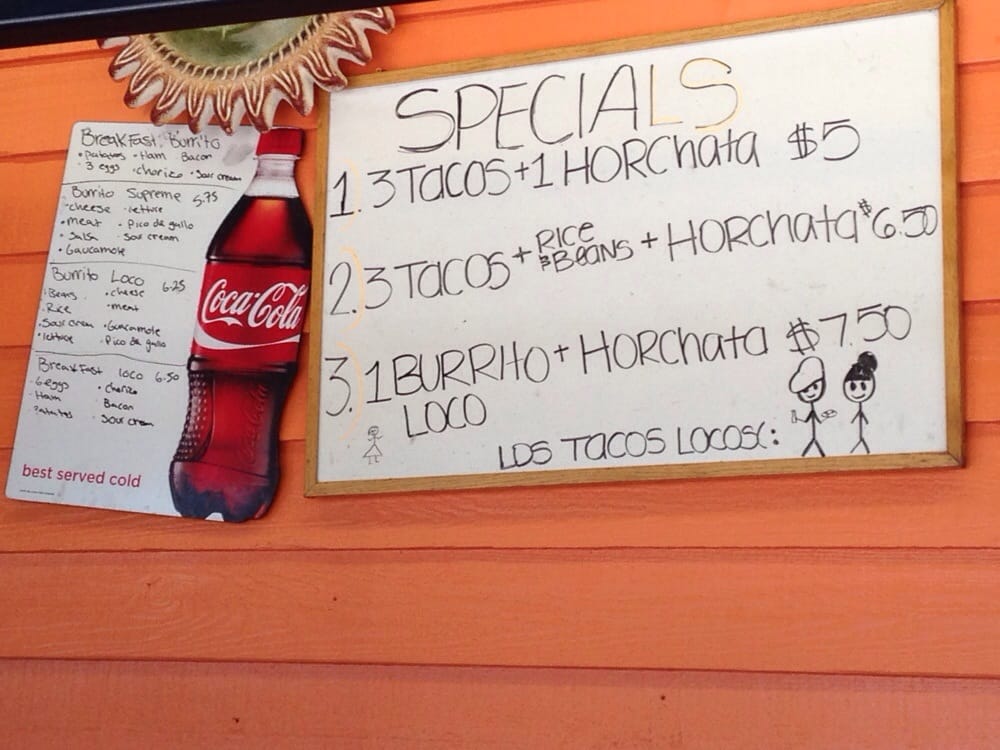 BreakFast Burrito
• potatoes • Ham Bacon
• 3 eggs • chorizo • Sour cream
Burrito Supreme 5.75
• cheese • lettuce
• meat • Pico de gallo
• Salsa • Sour cream
• Gaucamole
Burrito Loco 6.25
• Beans • cheese
• Rice • meat
• Sour cream • Guacamole
• lettuce • Pico de gallo
BreakFast loco 6.50
• 6 eggs • chorizo
• Ham Bacon
Sour cream
best served cold
Coca-Cola
SPECIALS
1. 3 TACOS + 1 HORChata $5
2. 3 TACOS + RICE & BEANS + HORChata $6.50
3. 1 BURRITO + HORChata $7.50
LOCO
LOS TACOS LOCOS(: